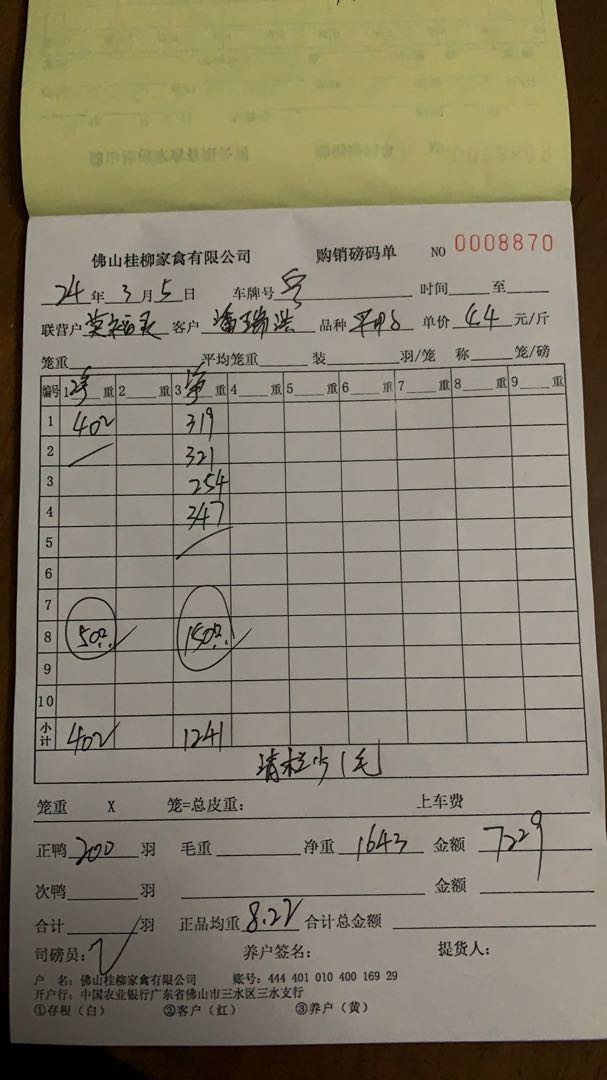 佛山桂柳家禽有限公司 购销磅码单 NO 0008870
24年3月5日 车牌号 时间 至
联营户 客户 潘瑞洪 品种 单价 4.4 元/斤
笼重 平均笼重 装 羽/笼 称 笼/磅
编号 1 重 2 重 3 重 4 重 5 重 6 重 7 重 8 重 9 重
1 402 319
2 321
3 254
4 347
5
6
7
8 50 150
9
10
小计 402 1241
清栏少1毛
笼重 X 笼=总皮重: 上车费
正鸭 200 羽 毛重 净重 1643 金额 7229
次鸭 羽 金额
合计 羽 正品均重 8.22 合计总金额
司磅员: 养户签名: 提货人:
户 名: 佛山桂柳家禽有限公司 账号: 444 401 010 400 169 29
开户行: 中国农业银行广东省佛山市三水区三水支行
①存根(白) ②客户(红) ③养户(黄)